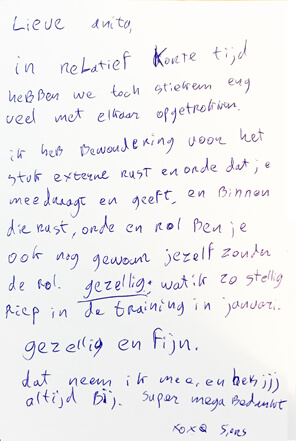 Lieve anita,
in relatief korte tijd
hebben we toch stiekem erg
veel met elkaar opgetrokken.
ik heb bewondering voor het
stuk externe rust en orde dat je
meedraagt en geeft, en binnen
die rust, orde en rol ben je
ook nog gewoon jezelf zonder
de rol. gezellig. wat ik zo stellig
riep in de training in januari.
gezellig en fijn.
dat neem ik mee, en heb jij
altijd bij. super mega bedankt
xoxo